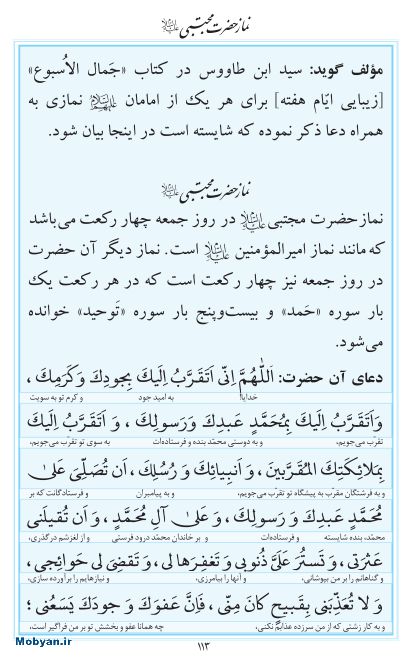 نماز حضرت مجتبی علیه‌السلام
مؤلف گوید: سید ابن طاووس در کتاب «جَمال الاُسبوع»
[زیبایی ایّام هفته] برای هر یک از امامان علیهم‌السلام نمازی به
همراه دعا ذکر نموده که شایسته است در اینجا بیان شود.
نماز حضرت مجتبی علیه‌السلام
نماز حضرت مجتبی علیه‌السلام در روز جمعه چهار رکعت می‌باشد
که مانند نماز امیرالمؤمنین علیه‌السلام است. نماز دیگر آن حضرت
در روز جمعه نیز چهار رکعت است که در هر رکعت یک
بار سوره «حَمد» و بیست‌وپنج بار سوره «تَوحید» خوانده
می‌شود.
دعای آن حضرت: اَللّٰهُمَّ اِنّی اَتَقَرَّبُ اِلَیكَ بِجودِكَ وَكَرَمِكَ ،
خدایا! به امید جود و کرم تو به سویت
وَاَتَقَرَّبُ اِلَیكَ بِمُحَمَّدٍ عَبدِكَ وَرَسولِكَ ، وَ اَتَقَرَّبُ اِلَیكَ
تقرّب می‌جویم، و به دوستی محمّد، بنده و فرستاده‌ات به سوی تو تقرّب می‌جویم،
بِمَلائِكَتِكَ المُقَرَّبینَ ، وَ اَنبِیائِكَ وَ رُسُلِكَ ، اَن تُصَلِّیَ عَلیٰ
و به فرشتگان مقرّب به پیشگاه تو تقرّب می‌جویم، و به پیامبران و فرستادگانت که بر
مُحَمَّدٍ عَبدِكَ وَ رَسولِكَ ، وَ عَلیٰ آلِ مُحَمَّدٍ ، وَ اَن تُقیلَنی
محمّد، بنده شایسته و فرستاده‌ات و بر خاندان محمّد درود فرستی و از لغزشم درگذری،
عَثرَتی ، وَ تَستُرَ عَلَیَّ ذُنوبی وَ تَغفِرَها لی ، وَ تَقضِیَ لی حَوائِجی ،
و گناهانم را بر من بپوشانی، و آنها را بیامرزی، و نیازهایم را برآورده سازی،
وَ لا تُعَذِّبَنی بِقَبیحٍ كانَ مِنّی ، فَاِنَّ عَفوَكَ وَ جودَكَ یَسَعُنی ؛
و به کار زشتی که از من سرزده عذابم نکنی، چه همانا عفو و بخشش تو بر من فراگیر است،
۱۱۳
Mobyan.ir